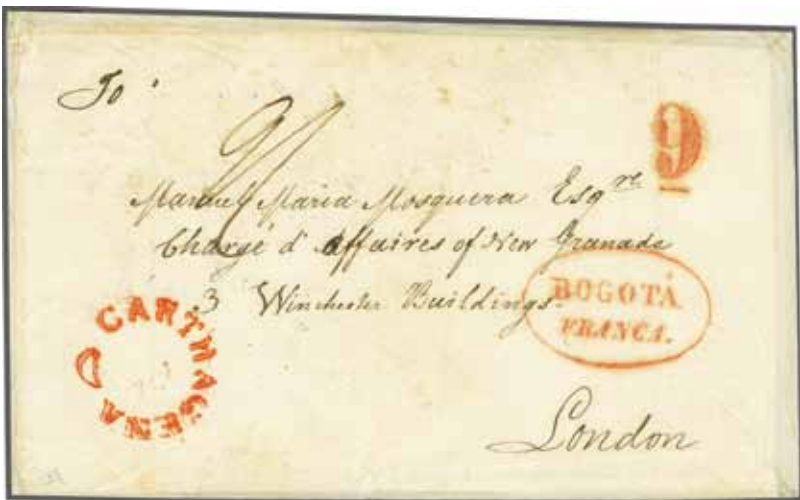 To
9
Manuel Maria Mosquera Esqre
Chargé d'affaires of New Granada
3 Winchester Buildings
BOGOTÁ
FRANCA.
CARTHAGENA
London